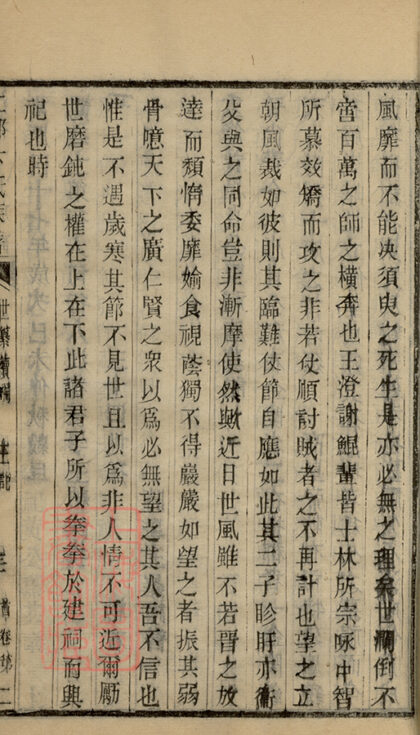 風靡而不能决須臾之死生是亦必無之理矣世瀾倒不
啻百萬之師之橫奔也王澄謝鯤輩皆士林所宗咏中智
所慕效矯而攻之非若仗順討賊者之不再計也望之立
朝風裁如彼則其臨難仗節自應如此其二子眕盱亦衞
父與之同命豈非漸摩使然歟近日世風雖不若晋之放
達而頹惰委靡媮食視蔭獨不得嚴嚴如望之者振其弱
骨噫天下之廣仁賢之衆以爲必無望之其人吾不信也
惟是不遇歲寒其節不見世且以爲非人情不可近爾勵
世磨鈍之權在上在下此諸君子所以拳拳於建祠而興
祀也時